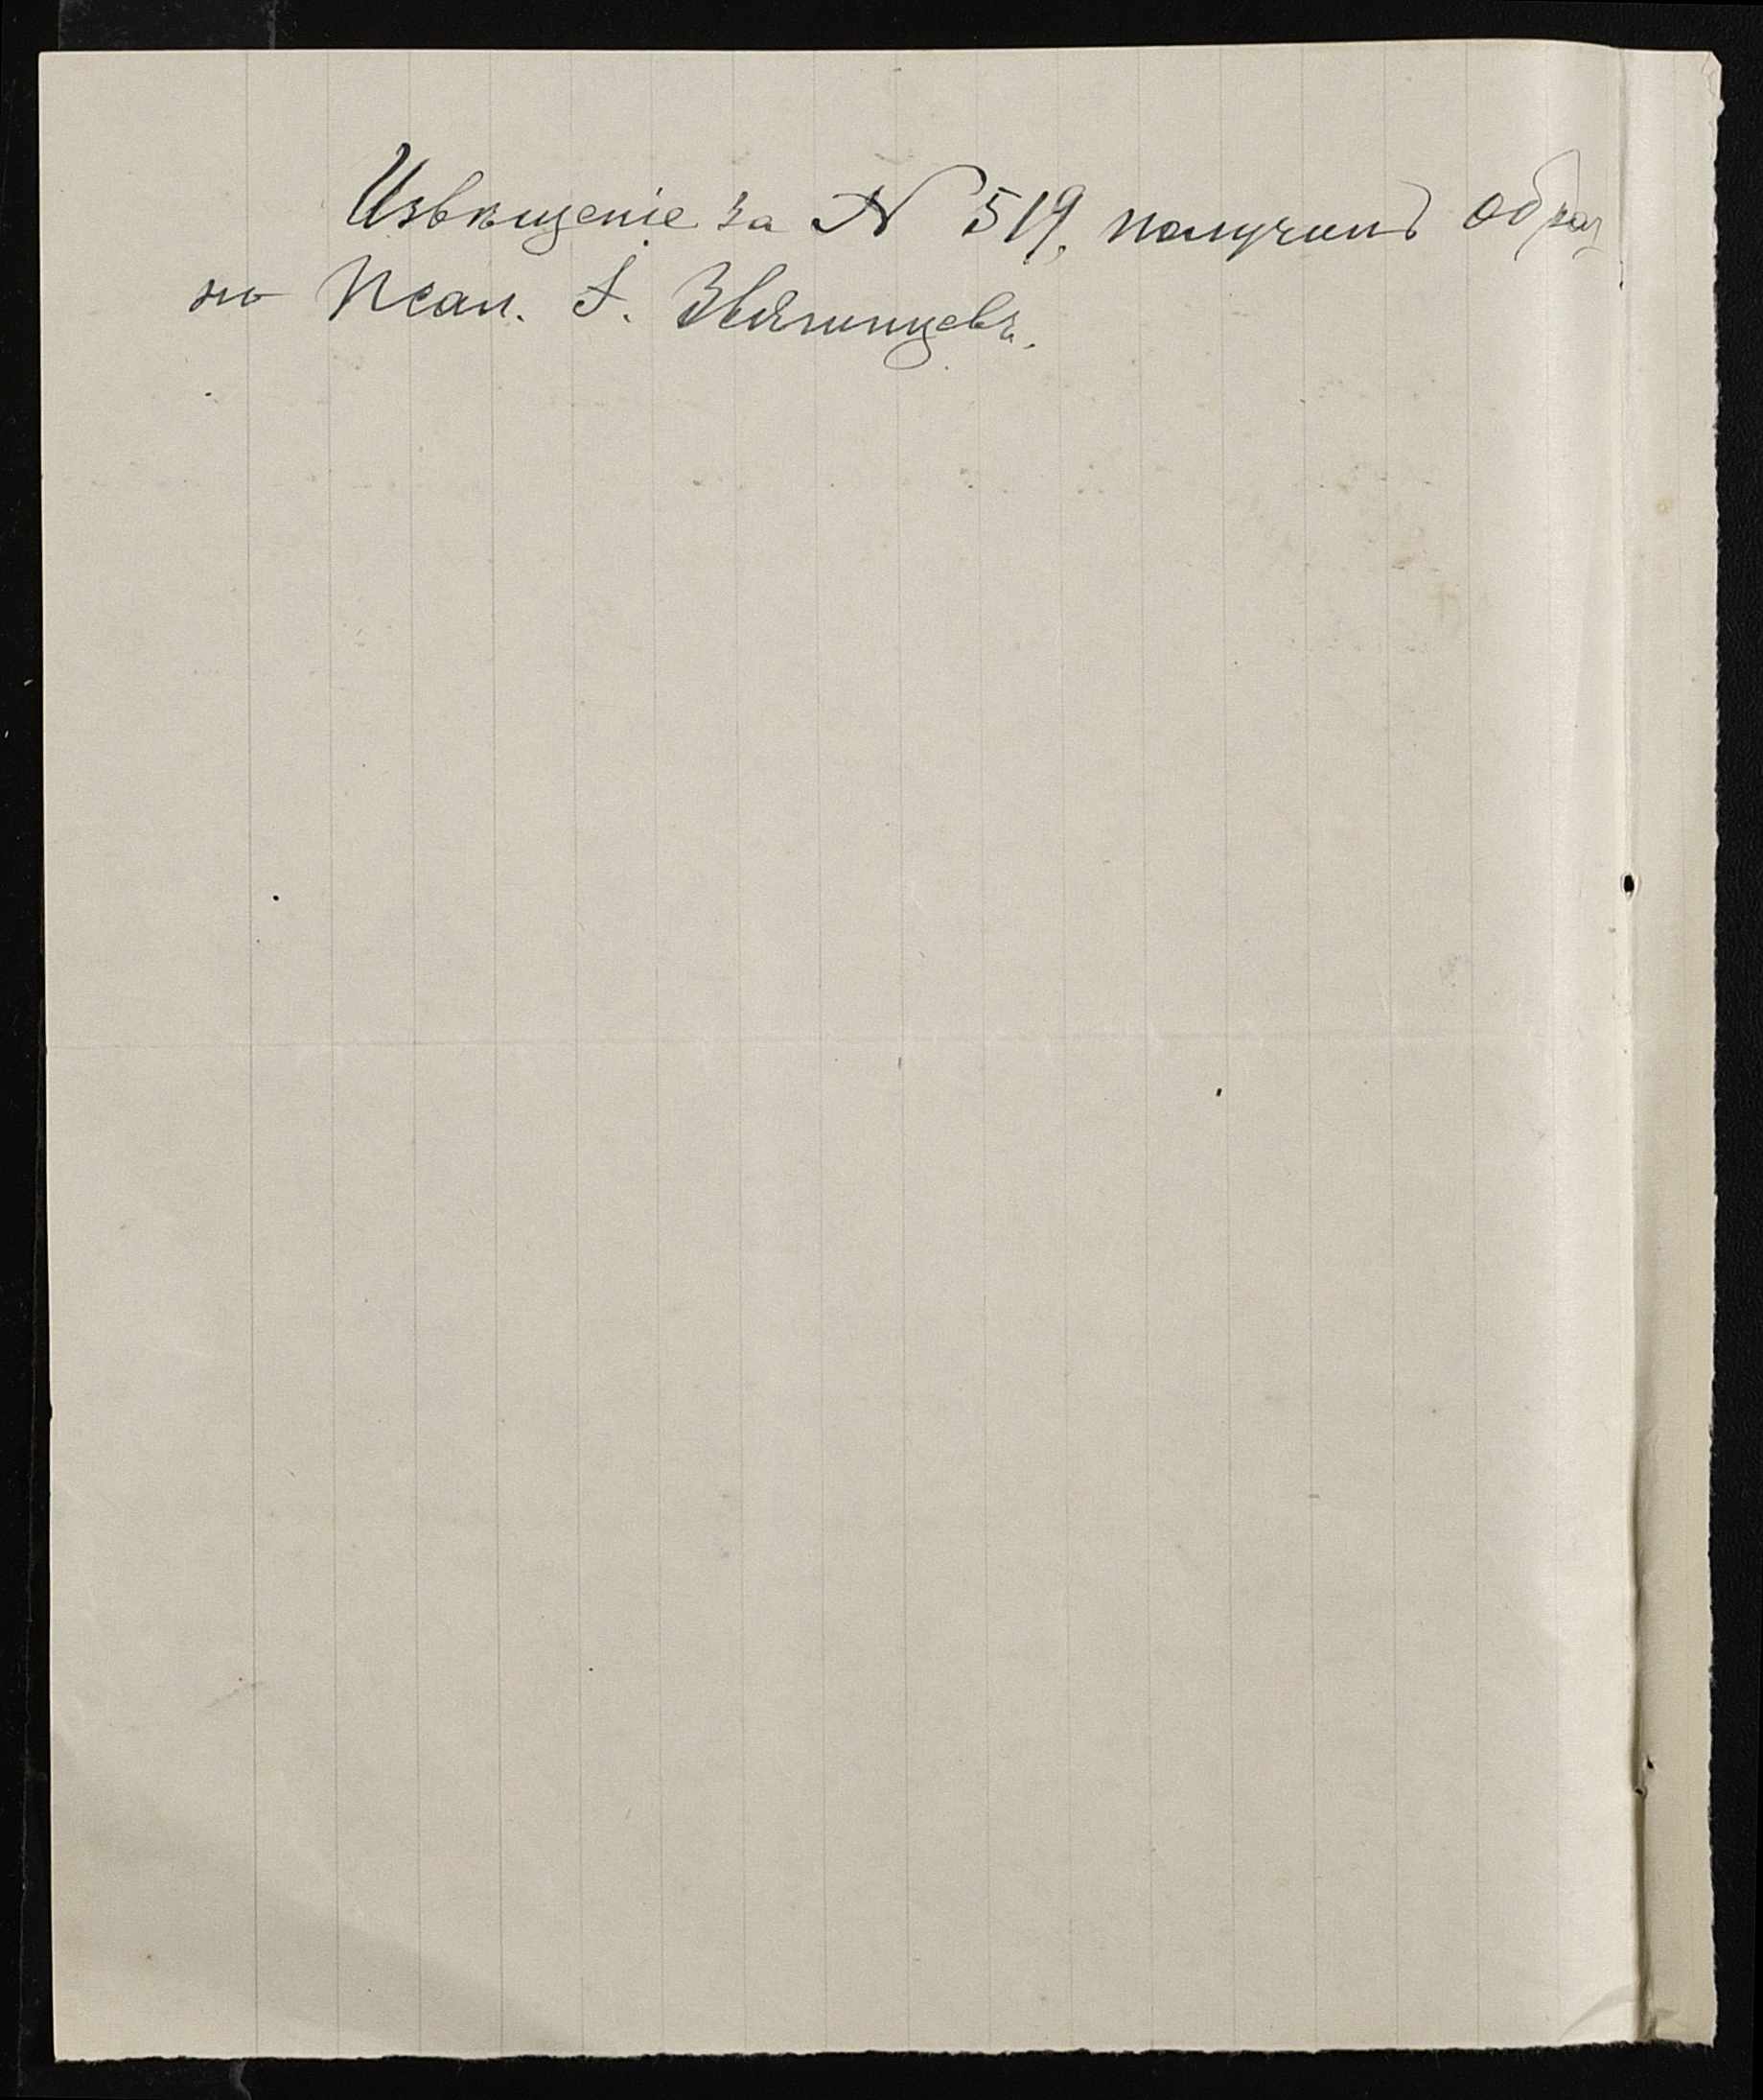 Извѣщеніе за № 519, получилъ обрат
но Псал. І. Звѣгинцевъ.